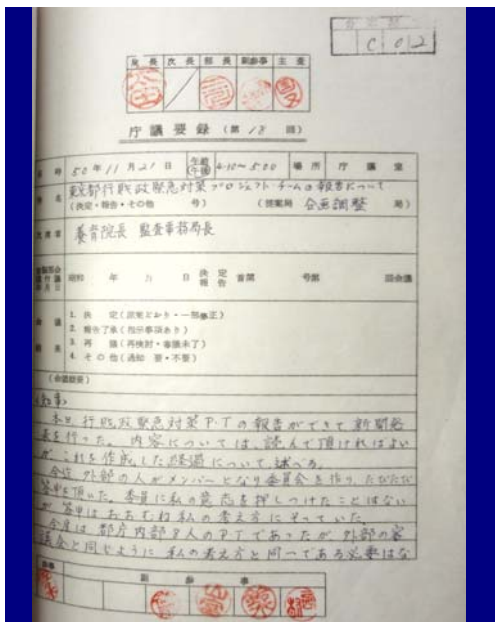 C 0 2
局長 次長 部長 副参事 主査
庁議要録(第18回)
50年11月21日 午後 4:10~5:00 場所 庁議室
件名 東京都行財政緊急対策プロジェクト・チームの報告について
(決定・報告・その他 号) (提案局 企画調整局)
養育院長 監査事務局長
昭和 年 月 日 決定 報告 首第 号第 回会議
1. 決定(原案どおり・一部修正)
2. 報告了承(指示事項あり)
3. 再議(再検討・審議未了)
4. その他(通知 要・不要)
(会議結果)
(知事)
本日、行財政緊急対策P・Tの報告ができて新聞発
表を行った。内容については、読んで頂ければよい
が、これを作成した経過について、述べる。
今迄、外部の人がメンバーとなり委員会を作り、たびたび
答申を頂いた。委員に私の意志を押しつけたことはない
が答申はおおむね私の考え方にそっていた。
今度は、都庁内部8人のPTであったが、外部の審
議会と同じように、私の考え方と同一である必要はな
副参事